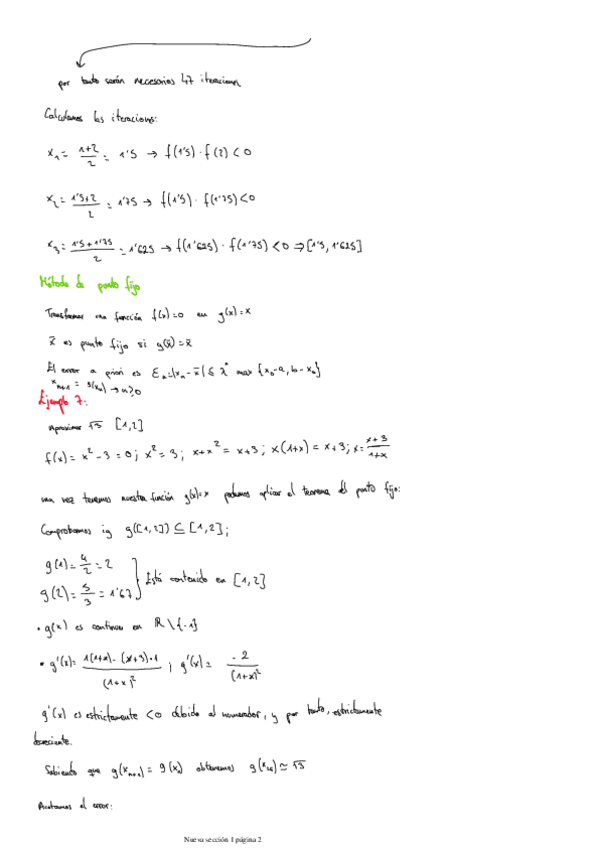 por tanto serán necesarias 47 iteraciones
Calculamos las iteraciones:
x₁ = (1+2)/2 = 1'5 → f(1'5) · f(2) < 0
x₂ = (1'5+2)/2 = 1'75 → f(1'5) · f(1'75) < 0
x₃ = (1'5+1'75)/2 = 1'625 → f(1'625) · f(1'75) < 0 ⇒ [1'5, 1'625]
Método de punto fijo
Transformamos una función f(x)=0 en g(x)=x
x̄ es punto fijo si g(x̄)=x̄
El error a priori es Eₙ=|xₙ-x̄| ≤ λⁿ max {x₀-a, b-x₀}
xₙ₊₁ = g(xₙ) → n≥0
Ejemplo 7:
Aproximar √3 [1,2]
f(x) = x²-3 = 0; x² = 3; x+x² = x+3; x(1+x) = x+3; x = (x+3)/(1+x)
una vez tenemos nuestra función g(x)=x podemos aplicar el teorema del punto fijo:
Comprobamos g([1,2]) ⊆ [1,2];
g(1) = 4/2 = 2
g(2) = 5/3 = 1'67 } Está contenido en [1,2]
· g(x) es continua en ℝ\{-1}
· g'(x) = (1(1+x) - (x+3)·1)/(1+x)² ; g'(x) = -2/(1+x)²
g'(x) es estrictamente <0 debido al numerador, y por tanto, estrictamente
decreciente.
Sabiendo que g(xₙ₊₁) = g(xₙ) obtenemos ≃ √3
Acotamos el error:
Nueva sección 1 página 2